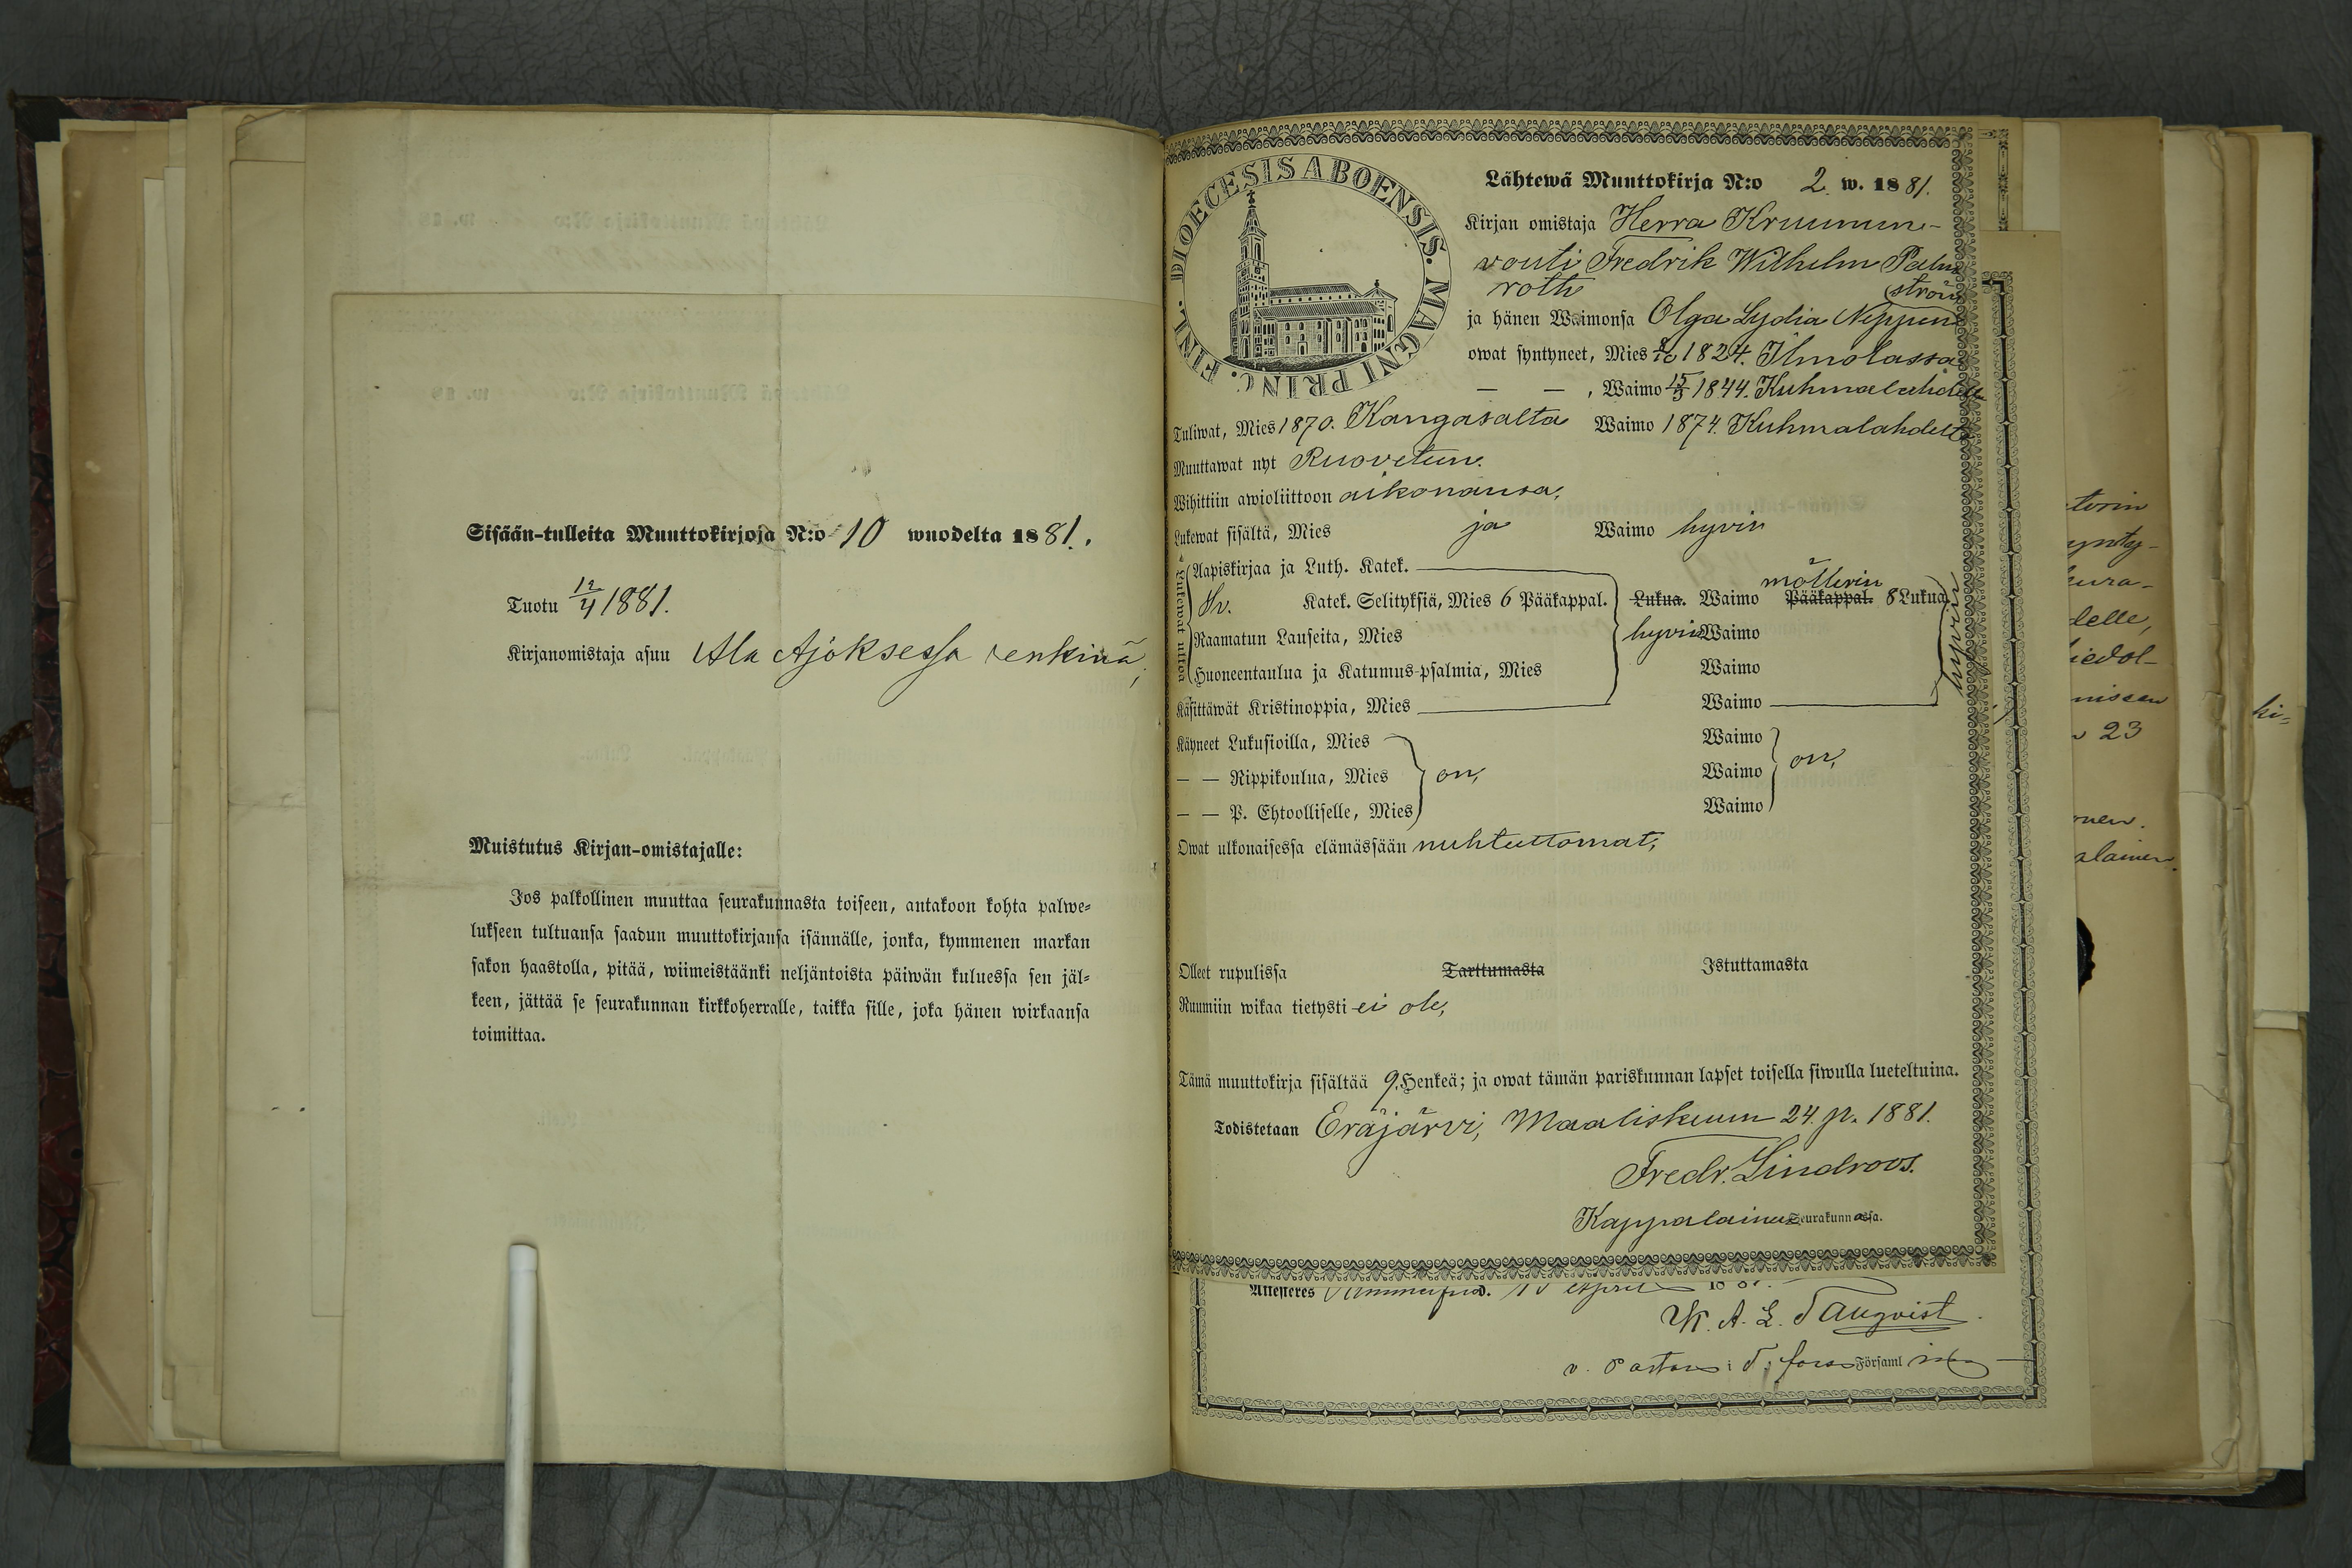 Sisään-tulleita Muuttokirjoja N:o 10 wuodelta 1881.
Tuotu 12/4 1881.
Kirjanomistaja asuu Ala Ajoksessa renkinä;
Muistutus Kirjan-omistajalle:
Jos palkollinen muuttaa seurakunnasta toiseen, antakoon kohta palwe-
lukseen tultuansa saadun muuttokirjansa isännälle, jonka, kymmenen markan
sakon haastolla, pitää, wiimeistäänki neljäntoista päiwän kuluessa sen jäl-
keen, jättää se seurakunnan kirkkoherralle, taikka sille, joka hänen wirkaansa
toimittaa.
DIOECESIS ABOENSIS. MAGNI PRINC. FINL.
Lähtewä Muuttokirja N:o 2. w. 1881.
Kirjan omistaja Herra Kruunun-
vouti Fredrik Wilhelm Palm
roth
(ström
ja hänen Waimonsa Olga Lydia Neppen
owat syntyneet, Mies 1824. Ilmolassa
— — , Waimo 15/3 1844. Kuhmalahdella
Tuliwat, Mies 1870. Kangasalta Waimo 1874. Kuhmalahdelta
Muuttawat nyt Ruovetun.
Wihittiin awioliittoon aikonansa,
Lukewat sisältä, Mies ja Waimo hyvin
Lukewat ulkoa
Aapiskirjaa ja Luth. Katek.
möllerin
Sv. Katek. Selityksiä, Mies 6 Pääkappal. Lukua. Waimo Pääkappal. 8 Lukua
Raamatun Lauseita, Mies hyvin Waimo
hyvin
Huoneentaulua ja Katumus-psalmia, Mies Waimo
Käsittäwät Kristinoppia, Mies Waimo
Käyneet Lukusioilla, Mies Waimo
— — Rippikoulua, Mies on, Waimo on,
— — P. Ehtoolliselle, Mies Waimo
Owat ulkonaisessa elämässään nuhteettomat,
Olleet rupulissa Tarttumasta Istuttamasta
Ruumiin wikaa tietysti ei ole,
Tämä muuttokirja sisältää 9. Henkeä; ja owat tämän pariskunnan lapset toisella siwulla lueteltuina.
Todistetaan Eräjärvi, Maaliskuun 24. p. 1881.
Fredr. Lindroos.
Kappalainen Seurakunnassa.
Attesteras
April
v. Pastor i
Församl
torin
delle,
23
alainen.
ki-